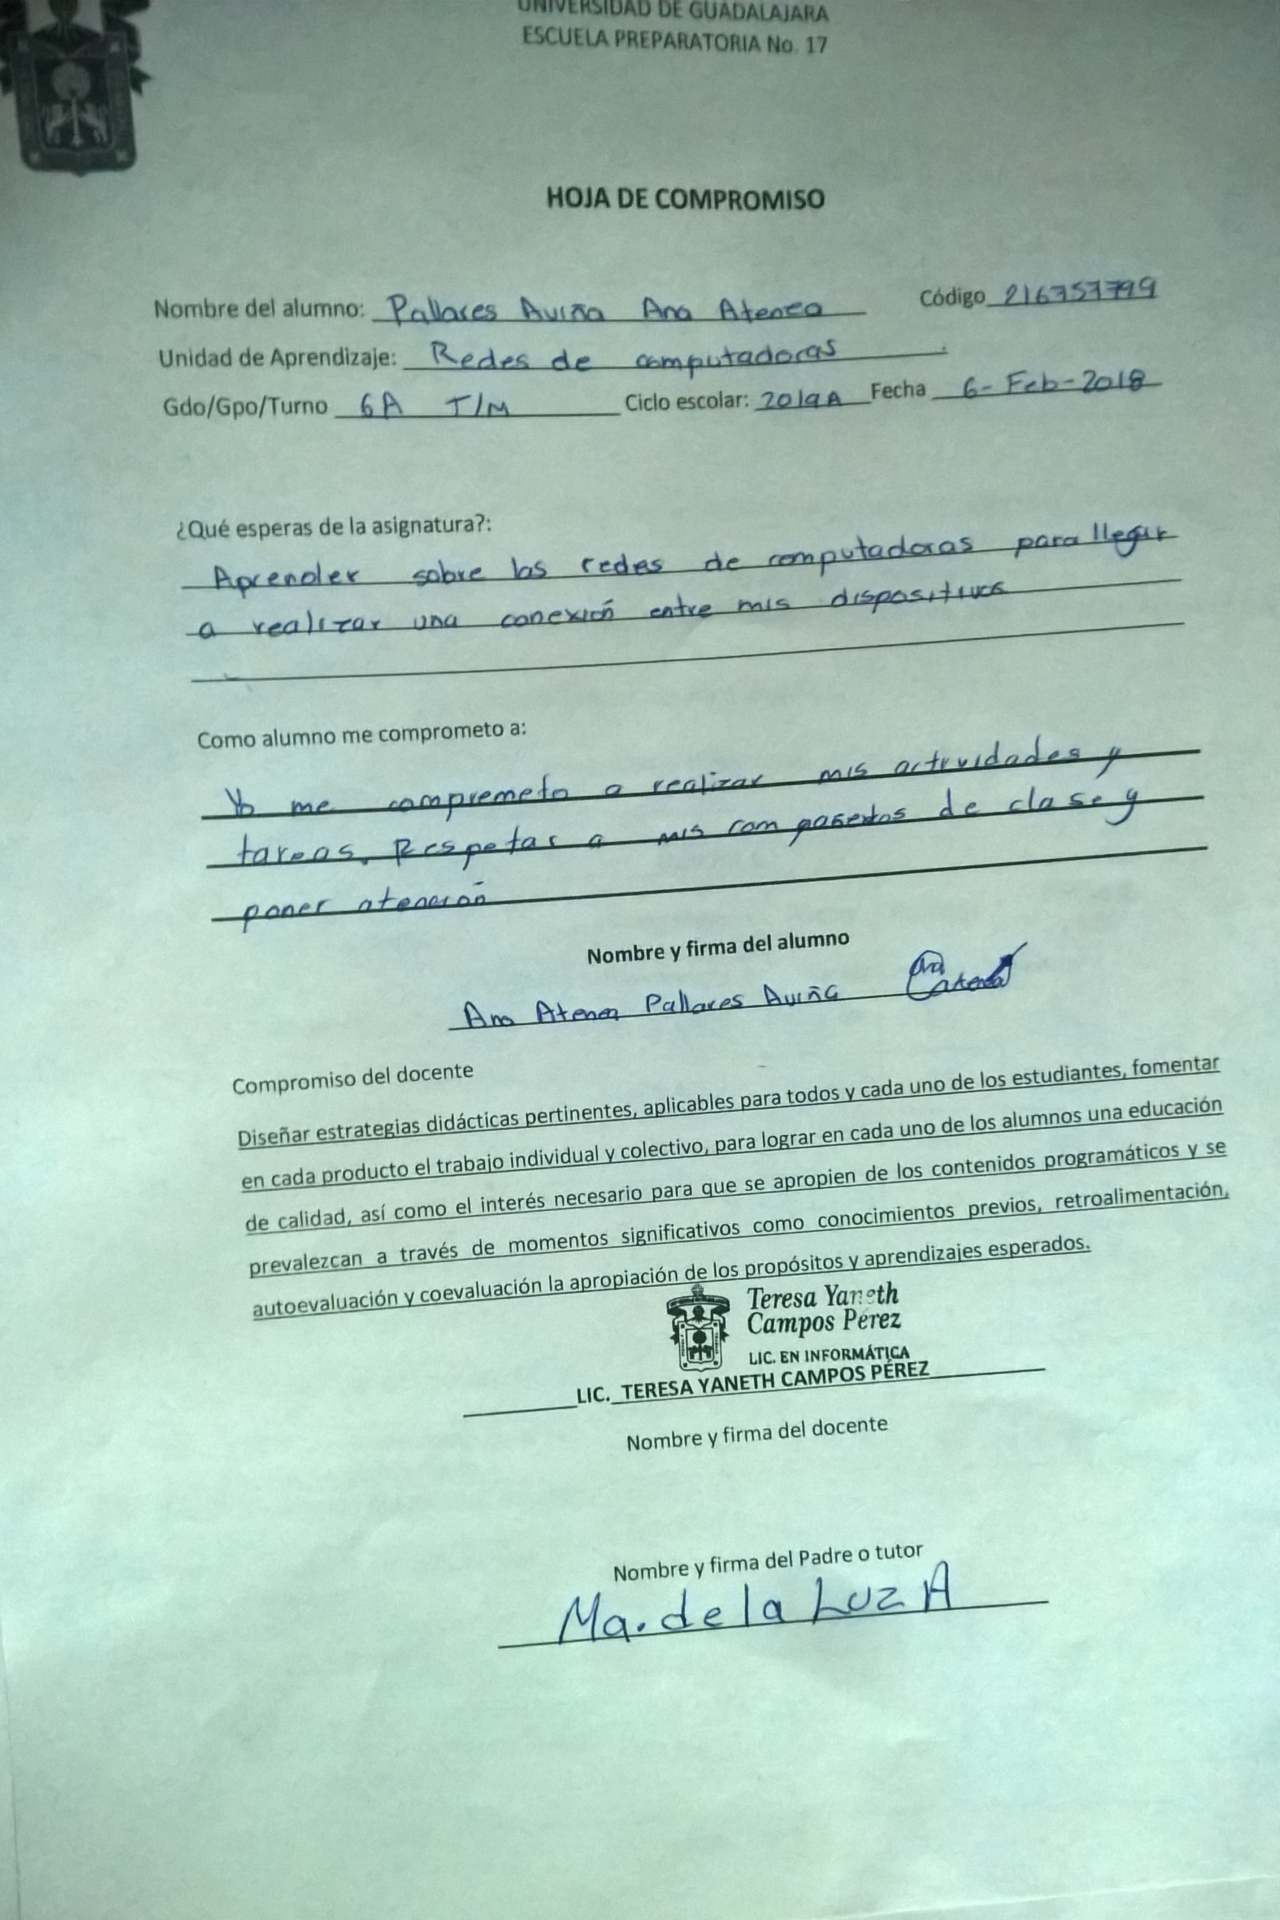 UNIVERSIDAD DE GUADALAJARA
ESCUELA PREPARATORIA No. 17
HOJA DE COMPROMISO
Nombre del alumno: Pallares Aviña Ana Atenea Código 216757799
Unidad de Aprendizaje: Redes de computadoras
Gdo/Gpo/Turno 6A T/M Ciclo escolar: 2019A Fecha 6-Feb-2018
¿Qué esperas de la asignatura?:
Aprender sobre las redes de computadoras para llegar
a realizar una conexión entre mis dispositivos
Como alumno me comprometo a:
Yo me compremeto a realizar mis actividades y
tareas. Respetar a mis compañeros de clase y
poner atención
Nombre y firma del alumno
Ana Atenea Pallares Aviña Ana Atenea
Compromiso del docente
Diseñar estrategias didácticas pertinentes, aplicables para todos y cada uno de los estudiantes, fomentar
en cada producto el trabajo individual y colectivo, para lograr en cada uno de los alumnos una educación
de calidad, así como el interés necesario para que se apropien de los contenidos programáticos y se
prevalezcan a través de momentos significativos como conocimientos previos, retroalimentación,
autoevaluación y coevaluación la apropiación de los propósitos y aprendizajes esperados.
Teresa Yaneth
Campos Pérez
LIC. EN INFORMÁTICA
LIC. TERESA YANETH CAMPOS PÉREZ
Nombre y firma del docente
Nombre y firma del Padre o tutor
Ma. de la Luz A